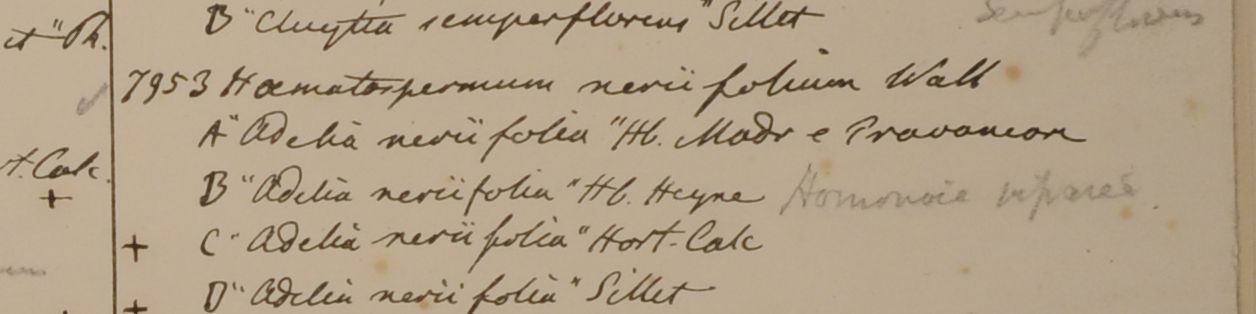 it "Ph.
B "Cluytia semperflorens" Sillet semperflorens
7953 Hœmatospermum neriifolium Wall
A "Adelia neriifolia" Hb. Madr e Travancore
t. Calc.
B "Adelia neriifolia" Hb. Heyne Homonoia riparia
+
+ C "Adelia neriifolia" Hort. Calc
+ D "Adelia neriifolia" Sillet